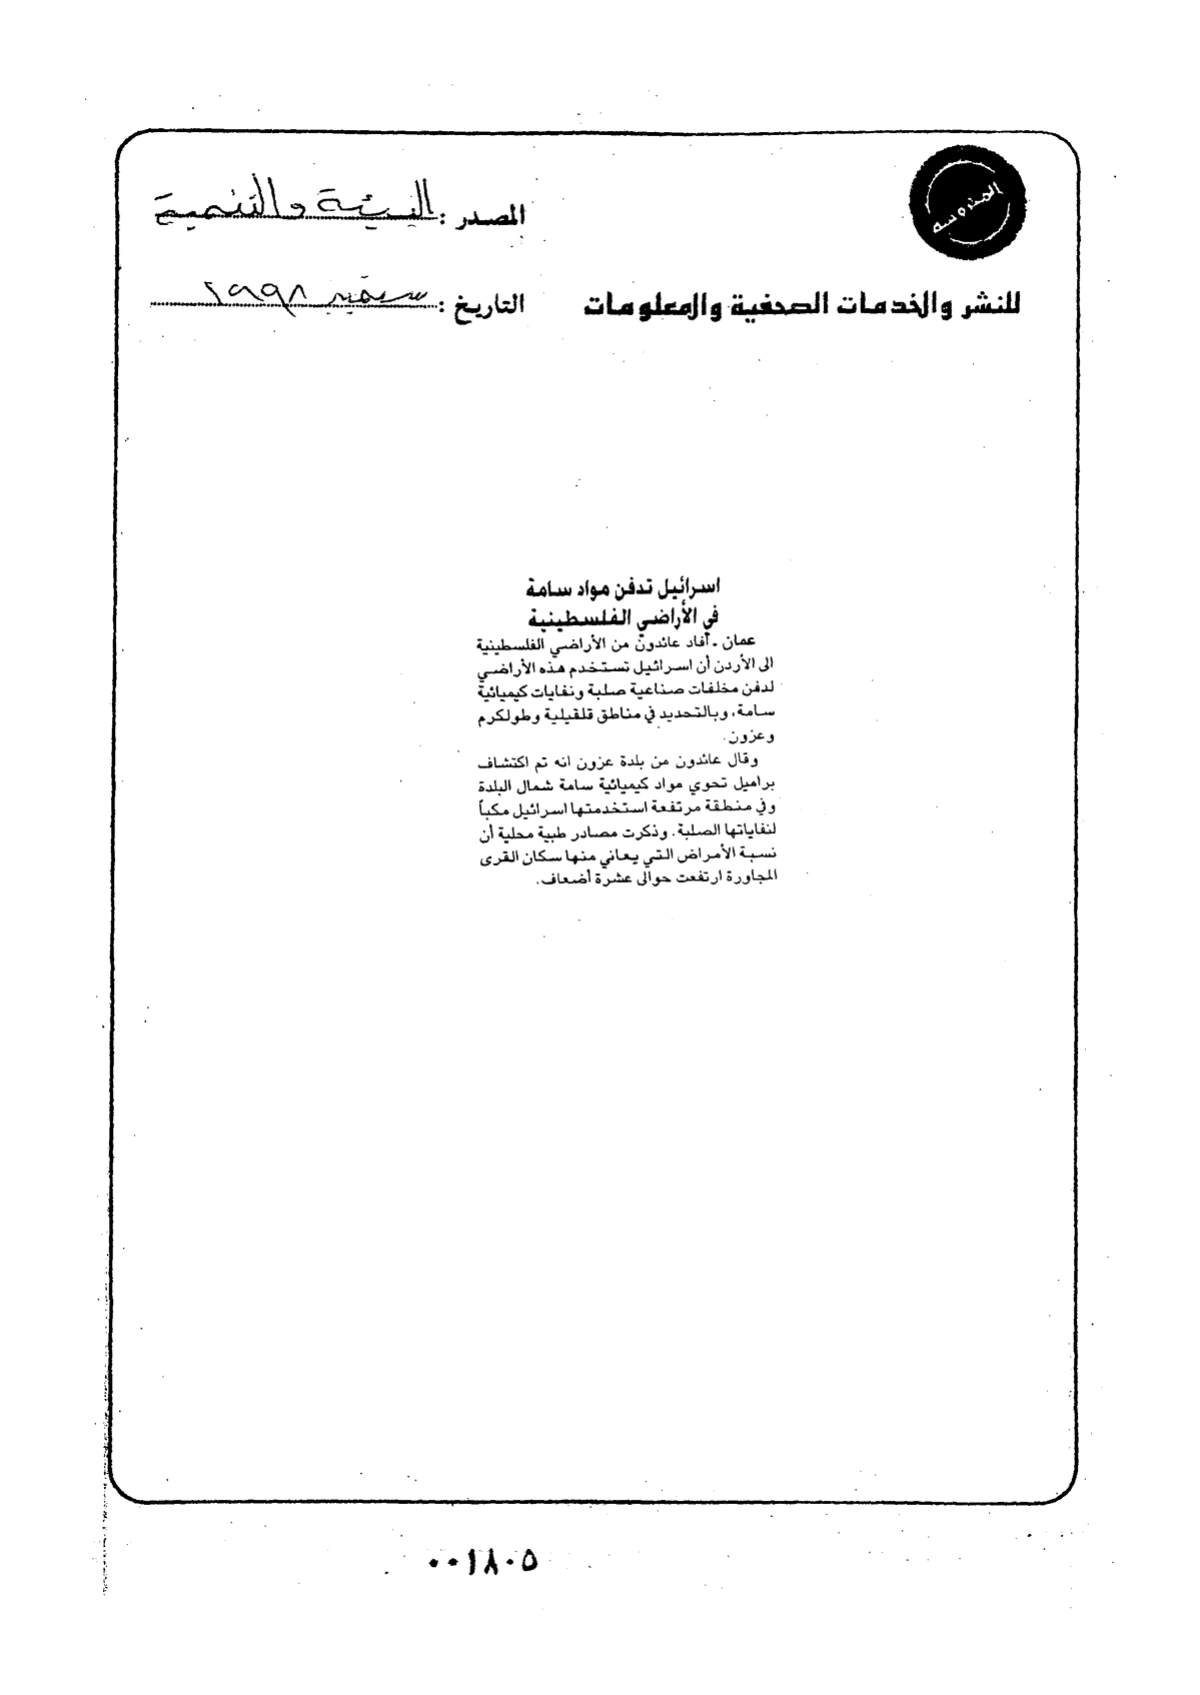 المصدر : البيئة والتنمية
للنشر والخدمات الصحفية والمعلومات
التاريخ : سبتمبر ١٩٩٨
اسرائيل تدفن مواد سامة
في الأراضي الفلسطينية
عمان ـ أفاد عائدون من الأراضي الفلسطينية
الى الأردن أن اسرائيل تستخدم هذه الأراضي
لدفن مخلفات صناعية صلبة ونفايات كيميائية
سامة، وبالتحديد في مناطق قلقيلية وطولكرم
وعزون.
وقال عائدون من بلدة عزون انه تم اكتشاف
براميل تحوي مواد كيميائية سامة شمال البلدة
وفي منطقة مرتفعة استخدمتها اسرائيل مكباً
لنفاياتها الصلبة. وذكرت مصادر طبية محلية أن
نسبة الأمراض التي يعاني منها سكان القرى
المجاورة ارتفعت حوالى عشرة أضعاف.
٠٠١٨٠٥